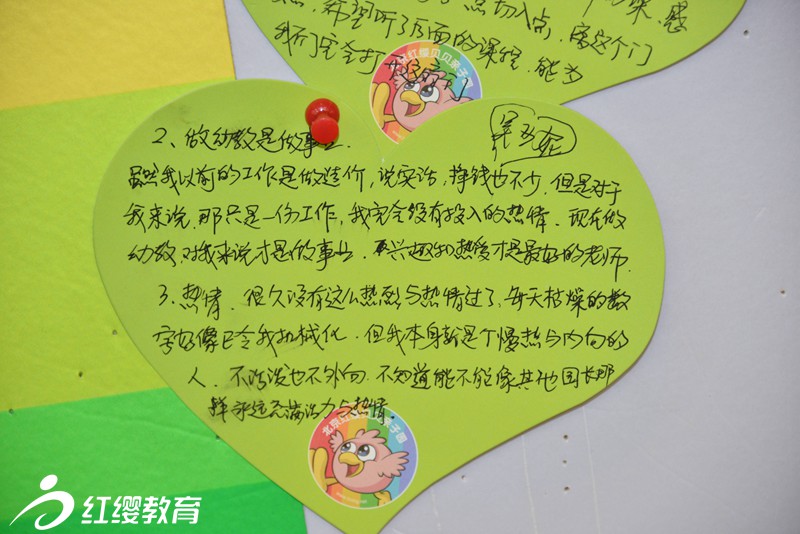 点切入点
希望听了后面的课程，能为
我们完全打开这扇门
红缨贝贝亲子园
第五花
2、做幼教是做事业.
虽然我以前的工作是做造价，说实话，挣钱也不少，但是对于
我来说，那只是一份工作，我完全没有投入的热情. 现在做
幼教，对我来说才是做事业. 兴趣和热爱才是最好的老师.
3、热情、很久没有这么热烈与热情过了，每天枯燥的数
字好像已令我机械化. 但我本身就是个慢热与内向的
人. 不活泼也不外向. 不知道能不能像其他园长那
样永远充满活力与热情.
北京 亲子园
红缨教育